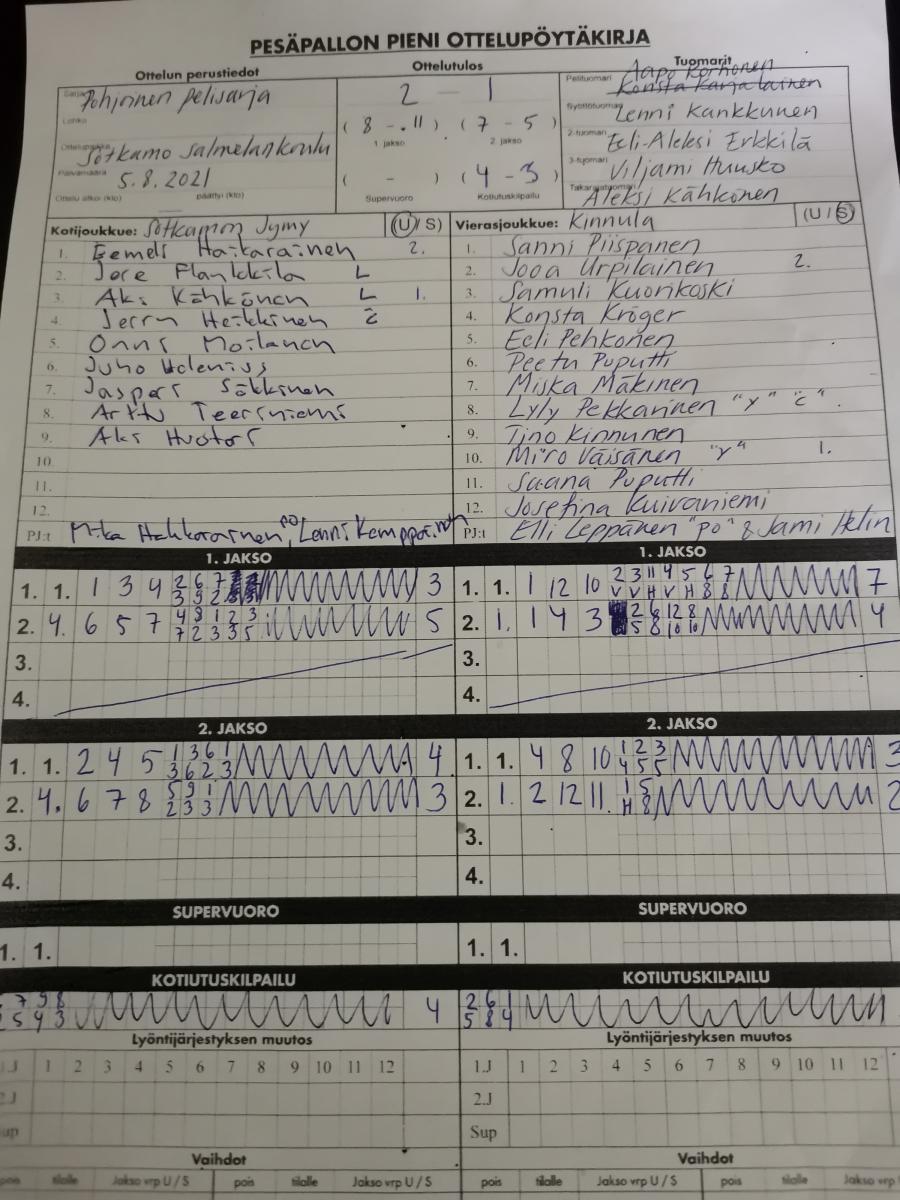 PESÄPALLON PIENI OTTELUPÖYTÄKIRJA
Ottelun perustiedot Ottelutulos Tuomarit
Sarja Pohjoinen pelisarja
Lohko
Ottelupaikka Sotkamo Salmelankoulu
Päivämäärä 5.8.2021
Ottelu alkoi (klo) päättyi (klo)
2 - 1
(8 - 11) (7 - 5)
1 jakso 2. jakso
( - ) (4 - 3)
Supervuoro Kotiutuskilpailu
Aapo Korhonen
Pelituomari Konsta Karjalainen
Syöttötuomari Lenni Kankkunen
2-tuomari Eeli-Aleksi Erkkilä
3-tuomari Viljami Huusko
Takarajatuomari Aleksi Kähkönen
Kotijoukkue: Sotkamon Jymy (U / S)
1. Eemeli Haikarainen 2.
2. Jere Flankkila L
3. Aki Kähkönen L 1.
4. Jerry Heikkinen
5. Onni Moilanen
6. Juho Holenius
7. Jasperi Säkkinen
8. Arttu Teeriniemi
9. Aki Huotari
10.
11.
12.
PJ:t Mika Haikarainen "PO", Lenni Kemppainen
Vierasjoukkue: Kinnula (U / S)
1. Sanni Piispanen
2. Jooa Urpilainen 2.
3. Samuli Kuorikoski
4. Konsta Kröger
5. Eeli Pehkonen
6. Peetu Puputti
7. Miska Mäkinen
8. Lyly Pekkarinen "Y" "C"
9. Tino Kinnunen
10. Miro Väisänen "Y" 1.
11. Saana Puputti
12. Josefina Kuivaniemi
PJ:t Elli Leppänen "PO" & Jami Helin
1. JAKSO
1. 1. 1 3 4 2 6 7 3
3 9 2
2. 4. 6 5 7 4 9 1 2 3 5
7 2 3 3 5
3.
4.
1. JAKSO
1. 1. 1 12 10 2 3 11 4 5 6 7 7
V V H V H 8 8
2. 1. 1 4 3 2 8 12 8 4
5 8 10 10
3.
4.
2. JAKSO
1. 1. 2 4 5 1 3 6 1 4
3 6 2 3
2. 4. 6 7 8 5 9 1 3
2 3 3
3.
4.
2. JAKSO
1. 1. 4 8 10 1 2 3 3
4 5 5
2. 1. 2 12 11. 1 5 2
H 8
3.
4.
SUPERVUORO
1. 1.
SUPERVUORO
1. 1.
KOTIUTUSKILPAILU
7 9 8 4
2 5 4 3
KOTIUTUSKILPAILU
2 6 1
5 8 4
Lyöntijärjestyksen muutos
1.J 1 2 3 4 5 6 7 8 9 10 11 12
2.J
Sup
Lyöntijärjestyksen muutos
1.J 1 2 3 4 5 6 7 8 9 10 11 12
2.J
Sup
Vaihdot
pois tilalle Jakso vrp U / S pois tilalle Jakso vrp U / S
Vaihdot
pois tilalle Jakso vrp U / S pois tilalle Jakso vrp